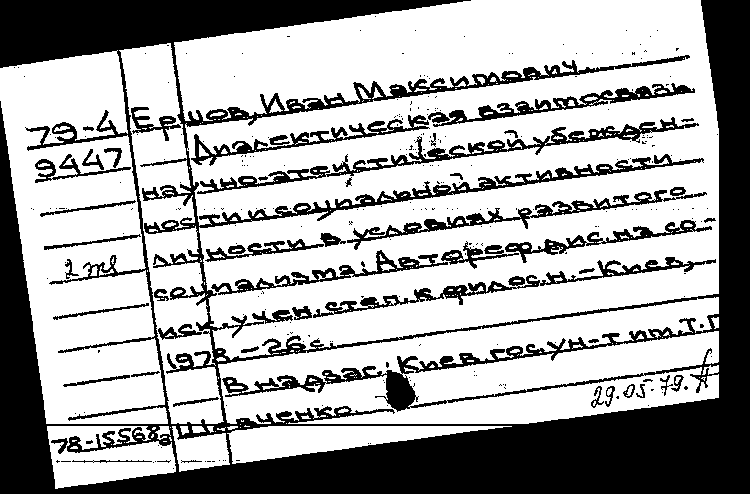 79-4 Ершов, Иван Максимович.
9447 Диалектическая взаимосвязь
научно-атеистической убежден-
ности и социальной активности
2 личности в условиях развитого
социализма: Автореф. дис. на со-
иск. учен. степ. к. филос. н. - Киев,
1978. - 26 с.
В надзаг.: Киев. гос. ун-т им. Т. Г.
78-15568а Шевченко.
29.05.79.